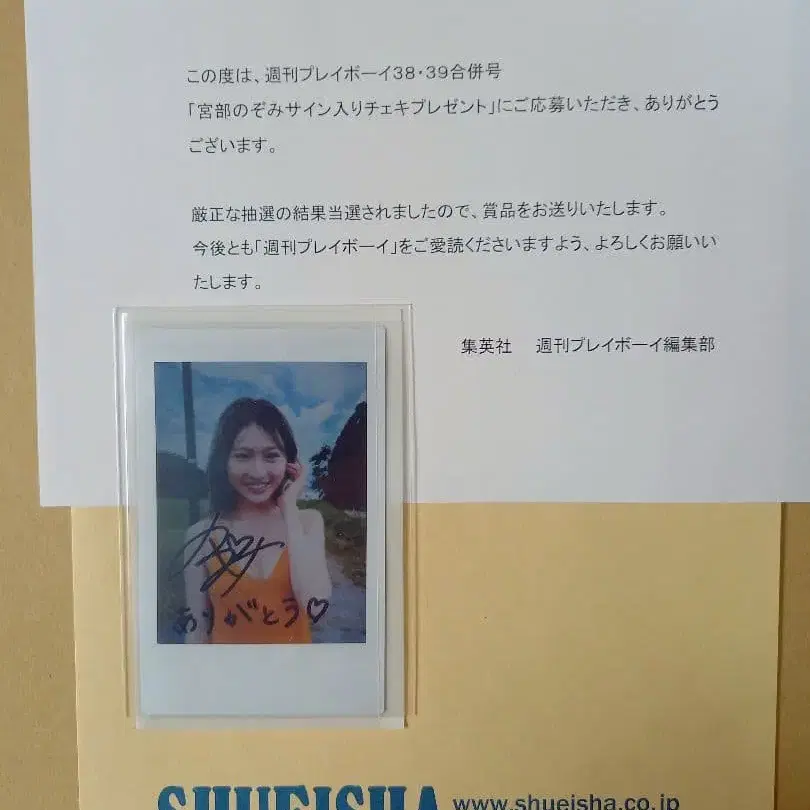 この度は、週刊プレイボーイ38・39合併号
「宮部のぞみサイン入りチェキプレゼント」にご応募いただき、ありがとう
ございます。
厳正な抽選の結果当選されましたので、賞品をお送りいたします。
今後とも「週刊プレイボーイ」をご愛読くださいますよう、よろしくお願いい
たします。
集英社　週刊プレイボーイ編集部
ありがとう♡
SHUEISHA www.shueisha.co.jp